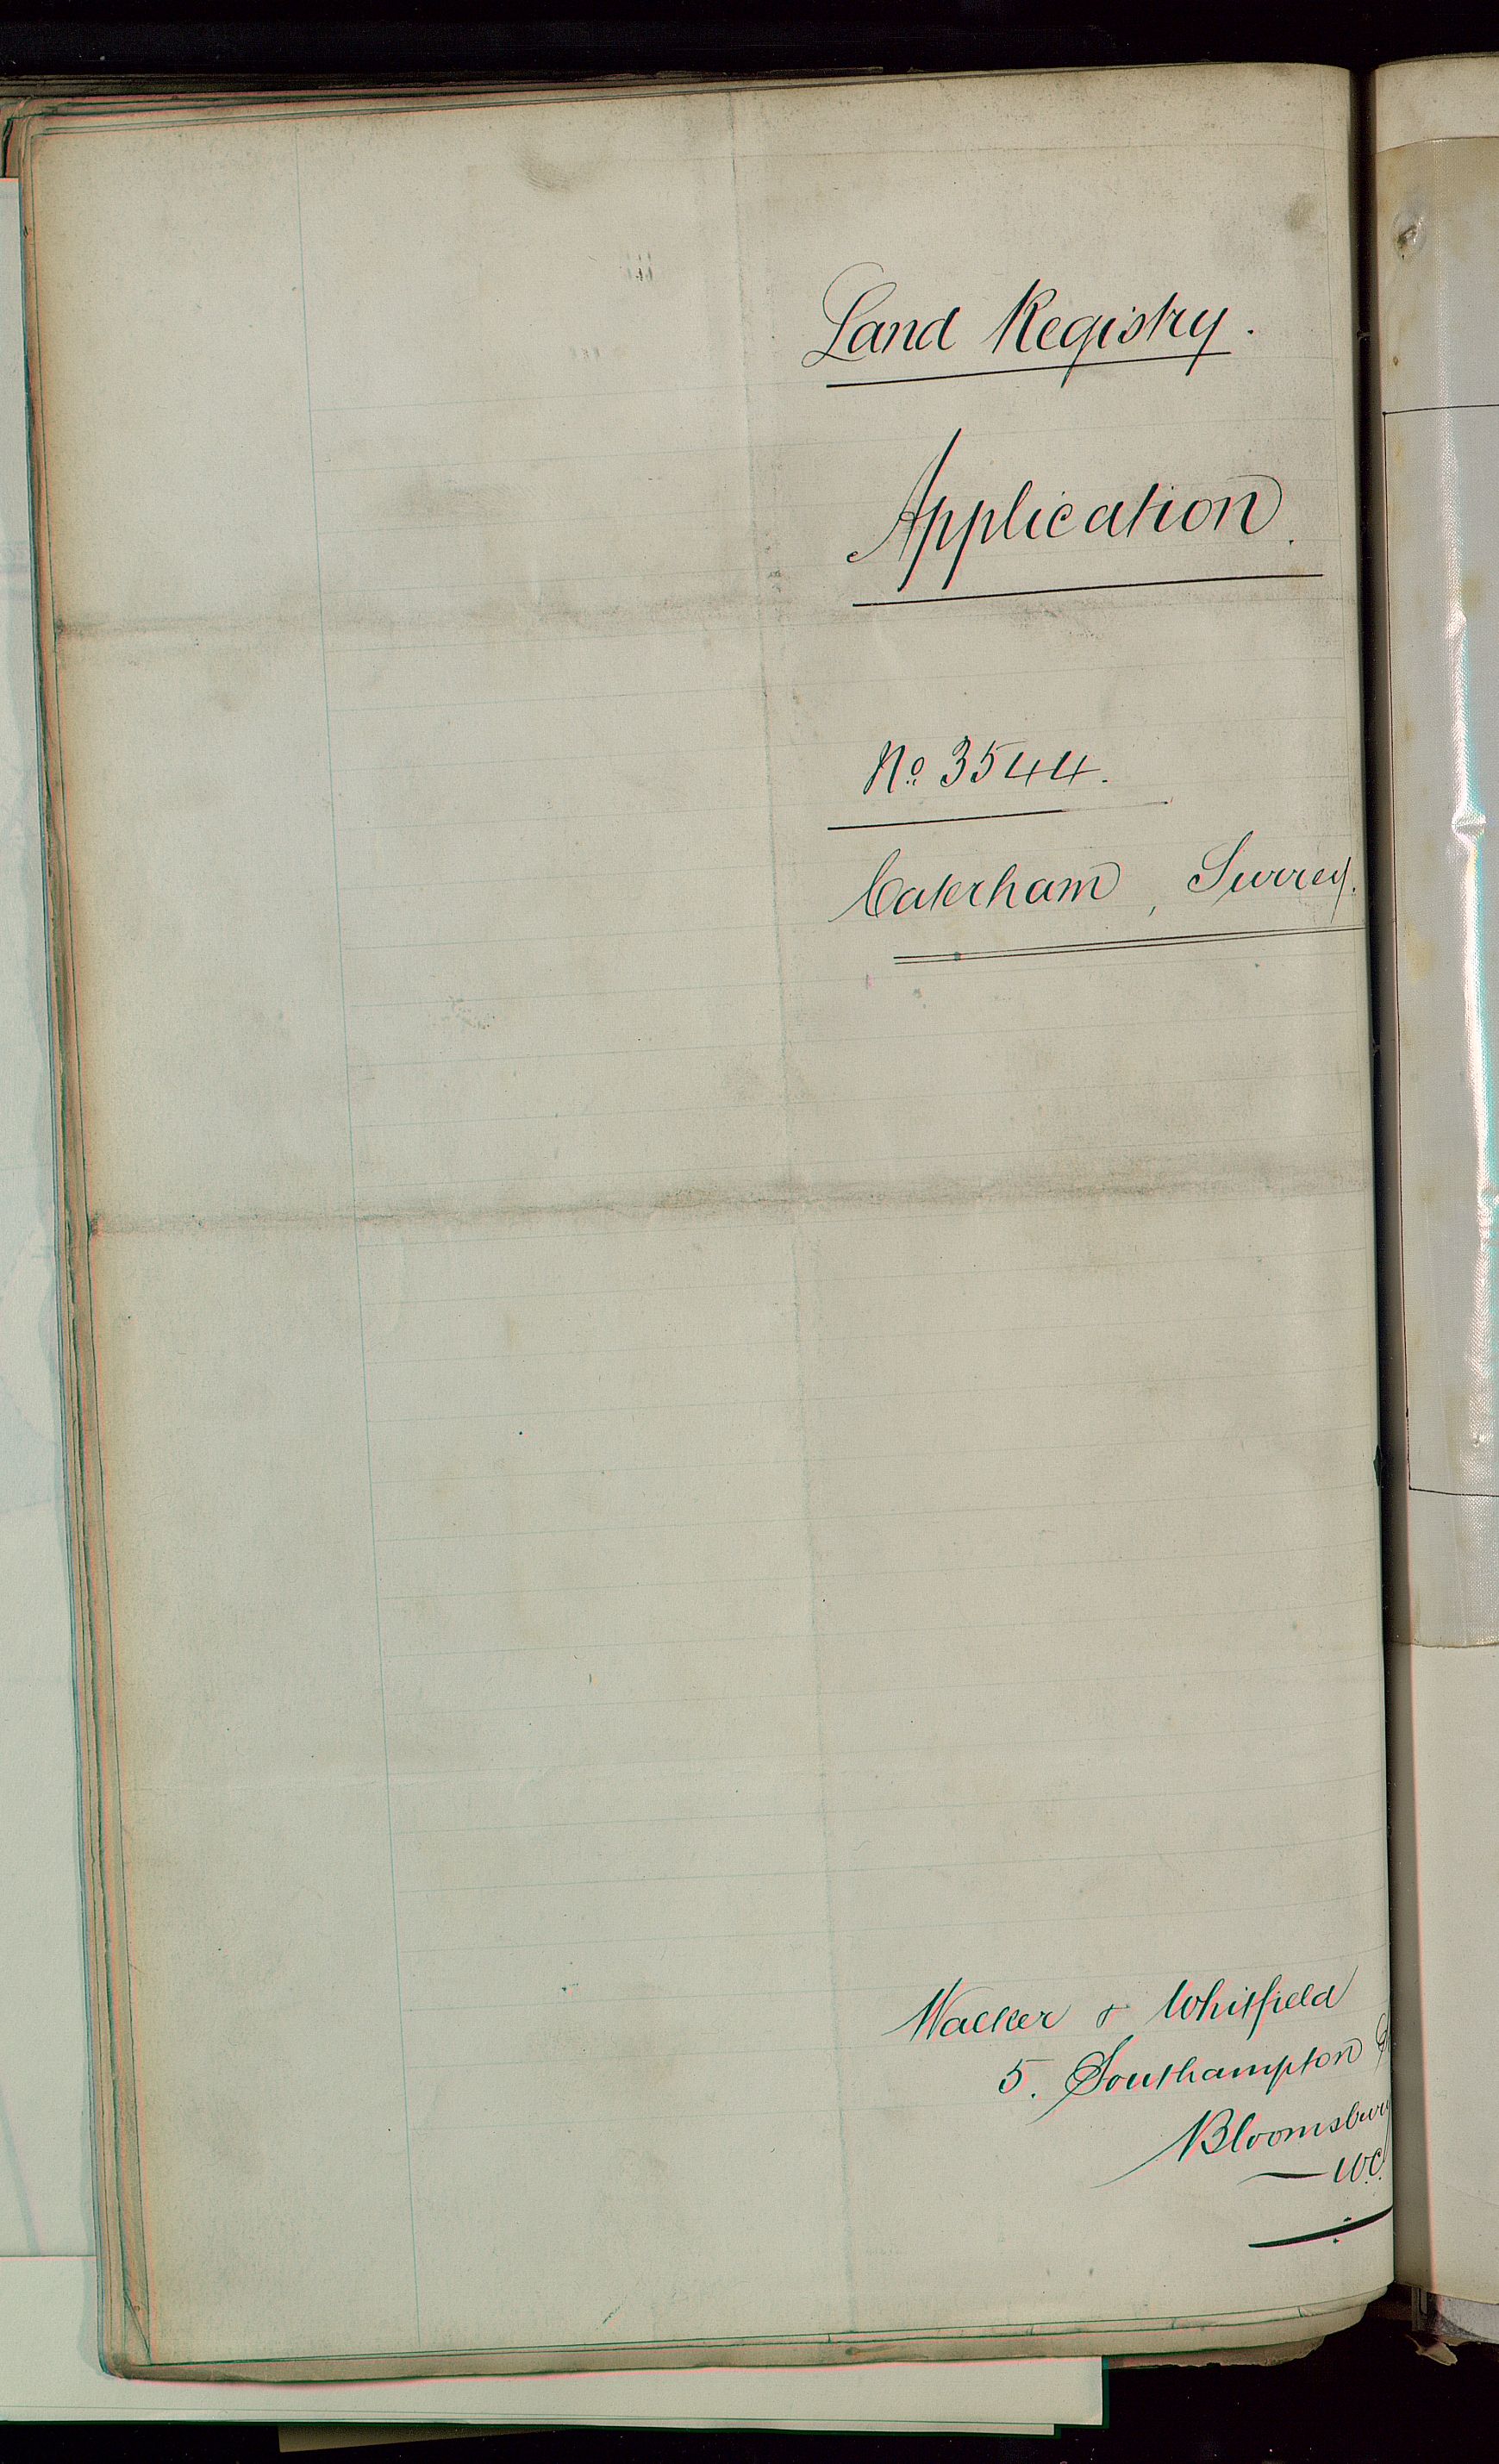 Land Registry.
Application.
No. 3544.
Caterham, Surrey.
Walker & Whitfield
5. Southampton
Bloomsbury
W.C.